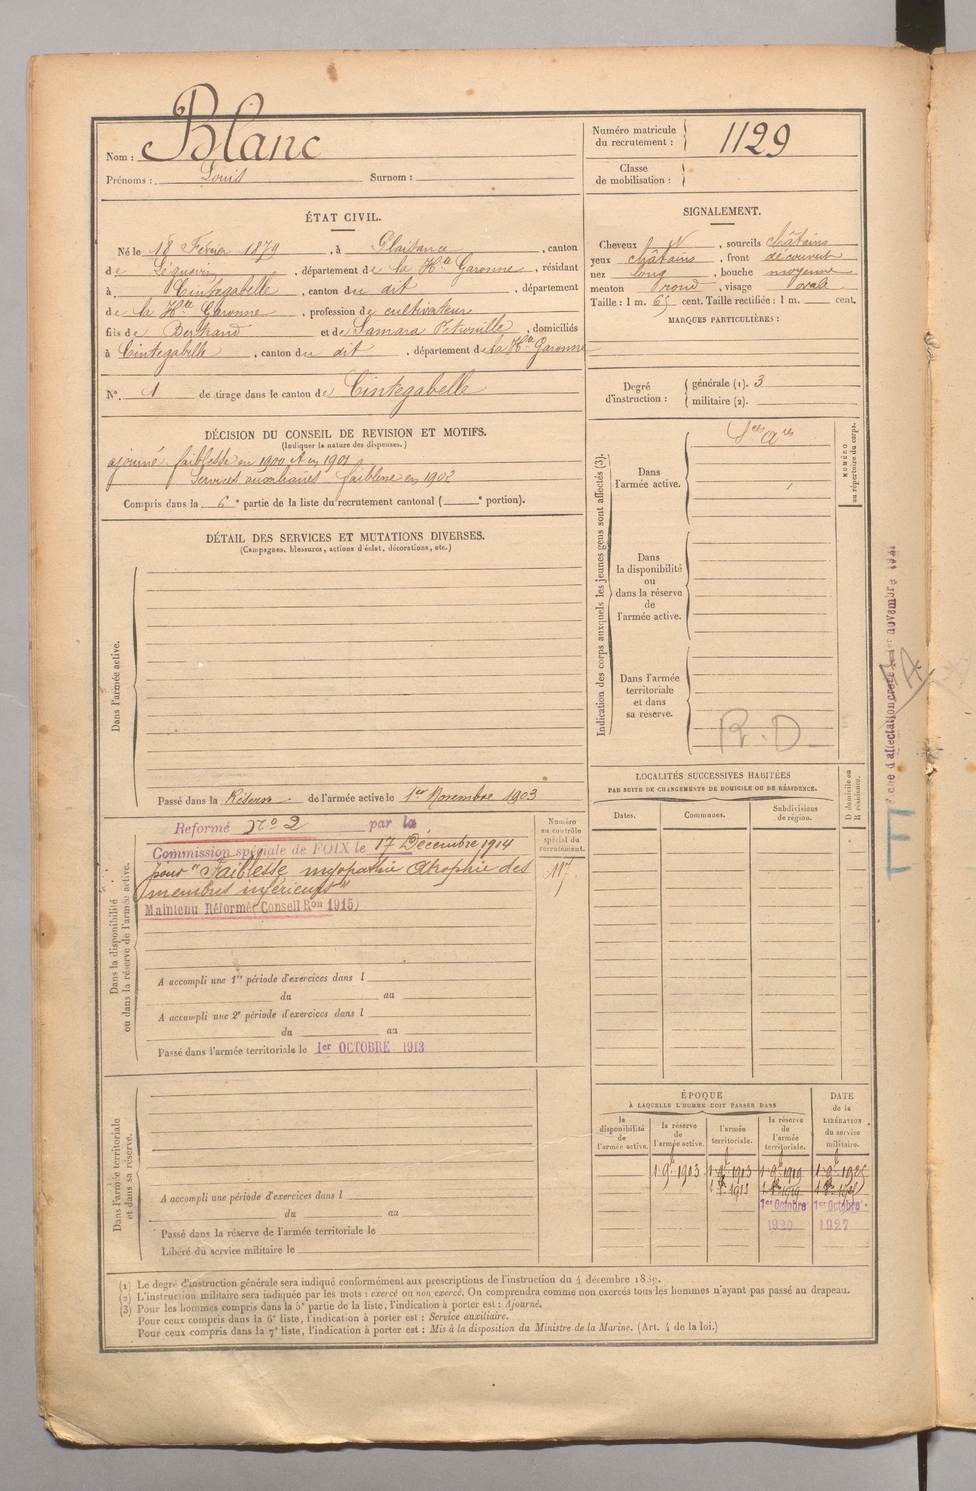 Nom : Blanc
Prénoms : Louis Surnom :
Numéro matricule du recrutement : 1129
Classe de mobilisation :
ÉTAT CIVIL.
Né le 18 Février 1879, à Plaisance, canton
de Léguevin, département de la Hte Garonne, résidant
à Cintegabelle, canton du dit, département
de la Hte Garonne, profession de cultivateur
fils de Bertrand et de Samara Petronille, domiciliés
à Cintegabelle, canton du dit, département de la Hte Garonne
N°. 1 de tirage dans le canton de Cintegabelle
SIGNALEMENT.
Cheveux , sourcils châtains
yeux châtains, front découvert
nez long, bouche moyenne
menton rond, visage ovale
Taille : 1 m. 65 cent. Taille rectifiée : 1 m. cent.
MARQUES PARTICULIÈRES :
Degré d'instruction : générale (1). 3
militaire (2).
DÉCISION DU CONSEIL DE REVISION ET MOTIFS.
(Indiquer la nature des dispenses.)
ajourné faiblesse en 1900 et en 1901
Services auxiliaires faiblesse en 1902
Compris dans la 6e partie de la liste du recrutement cantonal ( e portion).
DÉTAIL DES SERVICES ET MUTATIONS DIVERSES.
(Campagnes, blessures, actions d'éclat, décorations, etc.)
Dans l'armée active.
Passé dans la Réserve de l'armée active le 1er Novembre 1903
Indication des corps auxquels les jeunes gens sont affectés (3).
NUMÉRO au répertoire du corps.
Dans
l'armée active.
Sces Ares
Dans
la disponibilité
ou
dans la réserve
de
l'armée active.
Dans l'armée
territoriale
et dans
sa réserve.
R.D.
Dans la disponibilité
ou dans la réserve de l'armée active.
Numéro
au contrôle
spécial du
recrutement.
117
Reformé No 2 par la
Commission spéciale de FOIX le 17 Décembre 1914
pour "Faiblesse myopathie Atrophie des
membres inférieurs"
Maintenu Réformé (Conseil Ron 1915)
A accompli une 1re période d'exercices dans l
du au
A accompli une 2e période d'exercices dans l
du au
Passé dans l'armée territoriale le 1er OCTOBRE 1913
LOCALITÉS SUCCESSIVES HABITÉES
PAR SUITE DE CHANGEMENTS DE DOMICILE OU DE RÉSIDENCE.
Dates. Communes. Subdivisions de région.
D domicile ou R résidence.
Dans l'armée territoriale
et dans sa réserve.
A accompli une période d'exercices dans l
du au
Passé dans la réserve de l'armée territoriale le
Libéré du service militaire le
ÉPOQUE
À LAQUELLE L'HOMME DOIT PASSER DANS
la disponibilité de l'armée active.
la réserve de l'armée active.
l'armée territoriale.
la réserve de l'armée territoriale.
DATE de la LIBÉRATION du service militaire.
1 9bre 1903 1 9bre 1913 1 9bre 1919 1 9bre 1925
1er Octobre 1er Octobre
1920 1927
(1) Le degré d'instruction générale sera indiqué conformément aux prescriptions de l'instruction du 4 décembre 1889.
(2) L'instruction militaire sera indiquée par les mots : exercé ou non exercé. On comprendra comme non exercés tous les hommes n'ayant pas passé au drapeau.
(3) Pour les hommes compris dans la 5e partie de la liste, l'indication à porter est : Ajourné.
Pour ceux compris dans la 6e liste, l'indication à porter est : Service auxiliaire.
Pour ceux compris dans la 7e liste, l'indication à porter est : Mis à la disposition du Ministre de la Marine. (Art. 4 de la loi.)